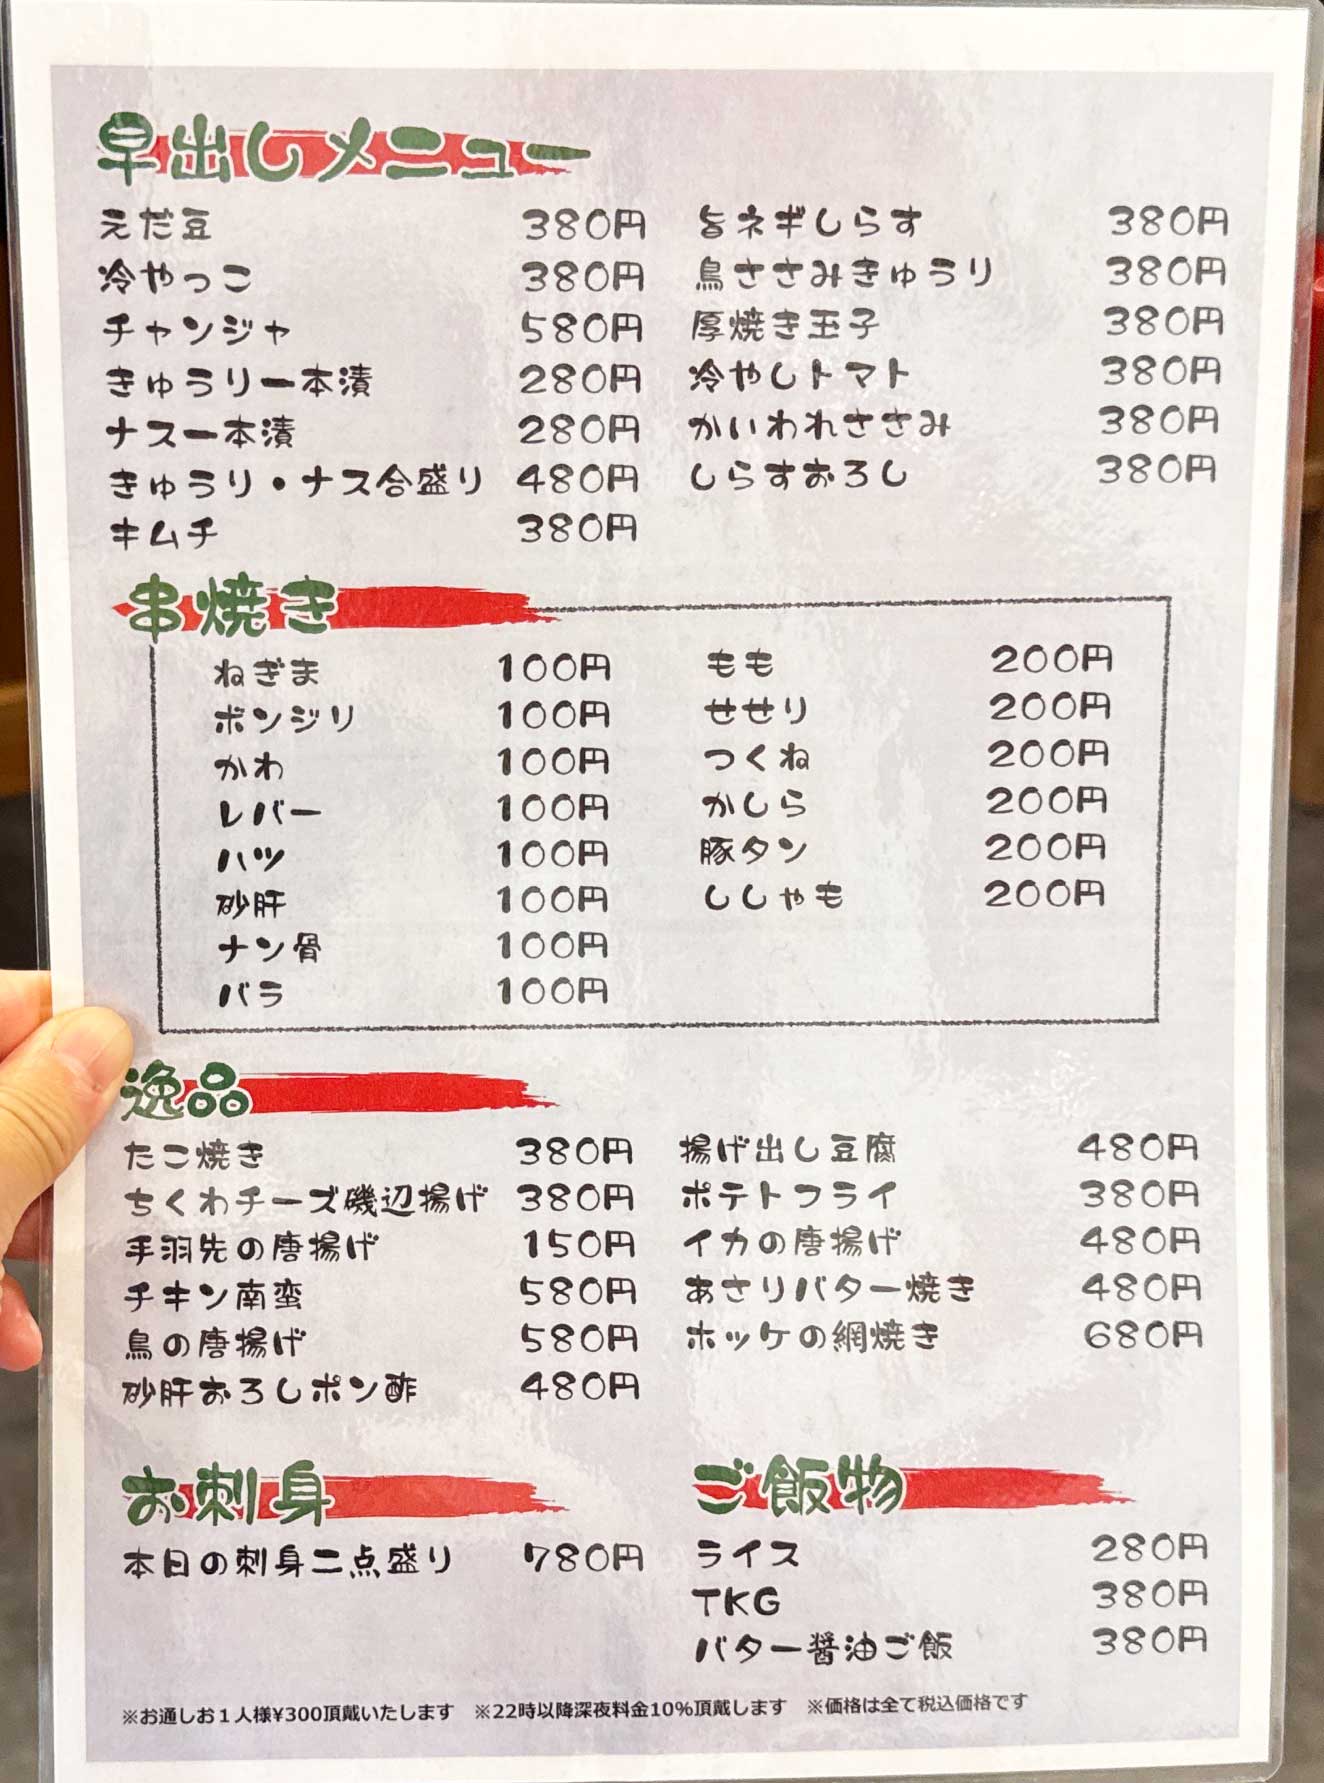 早出しメニュー
えだ豆 380円
冷やっこ 380円
チャンジャ 580円
きゅうり一本漬 280円
ナス一本漬 280円
きゅうり・ナス合盛り 480円
キムチ 380円
旨ネギしらす 380円
鳥ささみきゅうり 380円
厚焼き玉子 380円
冷やしトマト 380円
かいわれささみ 380円
しらすおろし 380円
串焼き
ねぎま 100円
ボンジリ 100円
かわ 100円
レバー 100円
ハツ 100円
砂肝 100円
ナン骨 100円
バラ 100円
もも 200円
せせり 200円
つくね 200円
かしら 200円
豚タン 200円
ししゃも 200円
逸品
たこ焼き 380円
ちくわチーズ磯辺揚げ 380円
手羽先の唐揚げ 150円
チキン南蛮 580円
鳥の唐揚げ 580円
砂肝おろしポン酢 480円
揚げ出し豆腐 480円
ポテトフライ 380円
イカの唐揚げ 480円
あさりバター焼き 480円
ホッケの網焼き 680円
お刺身
本日の刺身二点盛り 780円
ご飯物
ライス 280円
TKG 380円
バター醤油ご飯 380円
※お通しお1人様¥300頂戴いたします ※22時以降深夜料金10%頂戴します ※価格は全て税込価格です